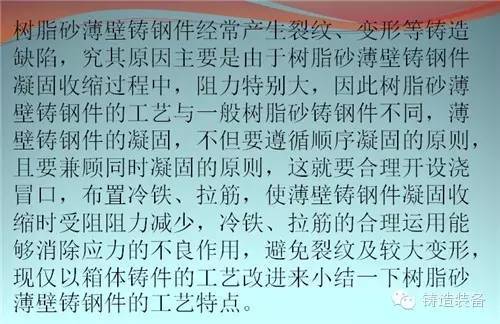 树脂砂薄壁铸钢件经常产生裂纹、变形等铸造
缺陷，究其原因主要是由于树脂砂薄壁铸钢件
凝固收缩过程中，阻力特别大，因此树脂砂薄
壁铸钢件的工艺与一般树脂砂铸钢件不同，薄
壁铸钢件的凝固，不但要遵循顺序凝固的原则，
且要兼顾同时凝固的原则，这就要合理开设浇
冒口，布置冷铁、拉筋，使薄壁铸钢件凝固收
缩时受阻阻力减少，冷铁、拉筋的合理运用能
够消除应力的不良作用，避免裂纹及较大变形，
现仅以箱体铸件的工艺改进来小结一下树脂砂
薄壁铸钢件的工艺特点。
铸造装备